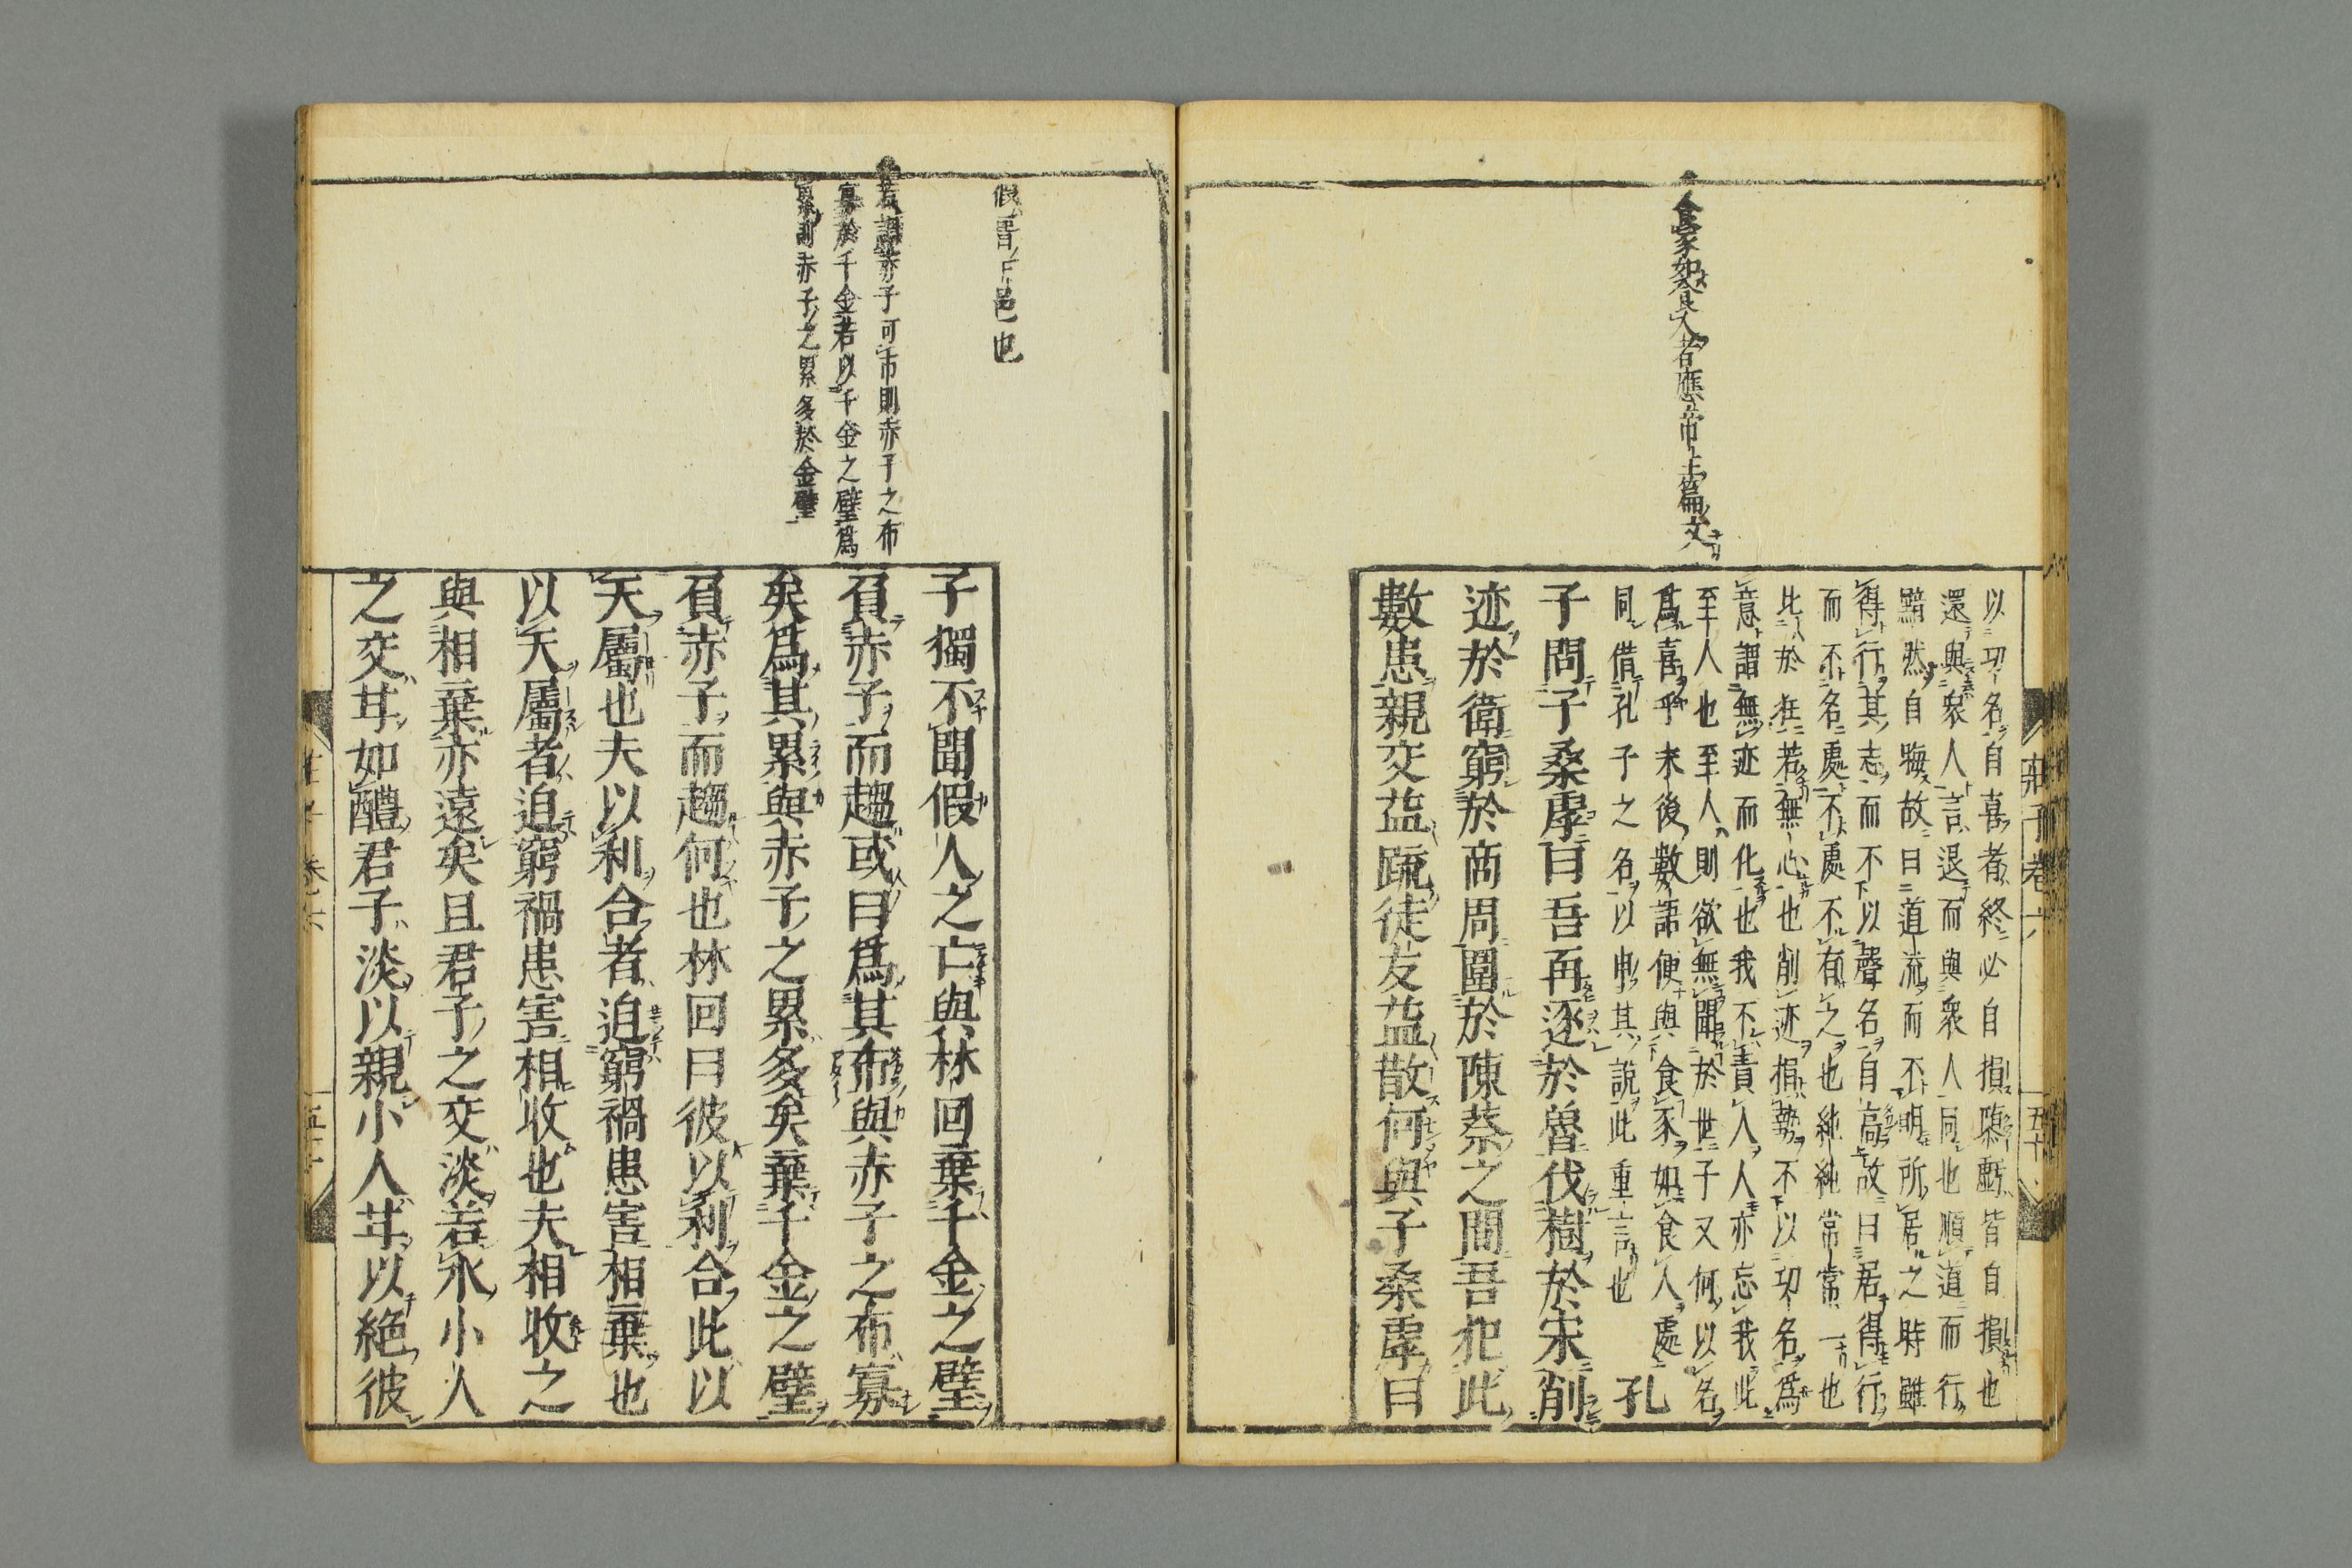 食豕如食人者應帝王篇文
以功名自喜者終必自損隳虧皆自損也
還與衆人言退而與衆人同也順道而行
黯然自晦故曰道流而不明所居之時雖
得行其志而不以聲名自高故曰居得行
而不名處不處不有之也純純常常一也
比於狂若無心也削迹捐勢不以功名爲
意謂無迹而化也我不責人人亦忘我此
至人也至人則欲無聞於世子又何以名
爲喜乎末後數語便與食豕如食人處
同借孔子之名以申其說此重言也 孔
子問子桑雽曰吾再逐於魯伐樹於宋削
迹於衛窮於商周圍於陳蔡之間吾犯此
數患親交益疏徒友益散何與子桑雽曰
莊子卷六
五十
假晋下邑也
若謂赤子可市則赤子之布
寡於千金若以千金之璧爲
累則赤子之累多於金璧
子獨不聞假人之亡與林回棄千金之璧
負赤子而趨或曰爲其布與赤子之布寡
矣爲其累與赤子之累多矣棄千金之璧
負赤子而趨何也林回曰彼以利合此以
天屬也夫以利合者迫窮禍患害相棄也
以天屬者迫窮禍患害相收也夫相收之
與相棄亦遠矣且君子之交淡若水小人
之交甘如醴君子淡以親小人甘以絕彼